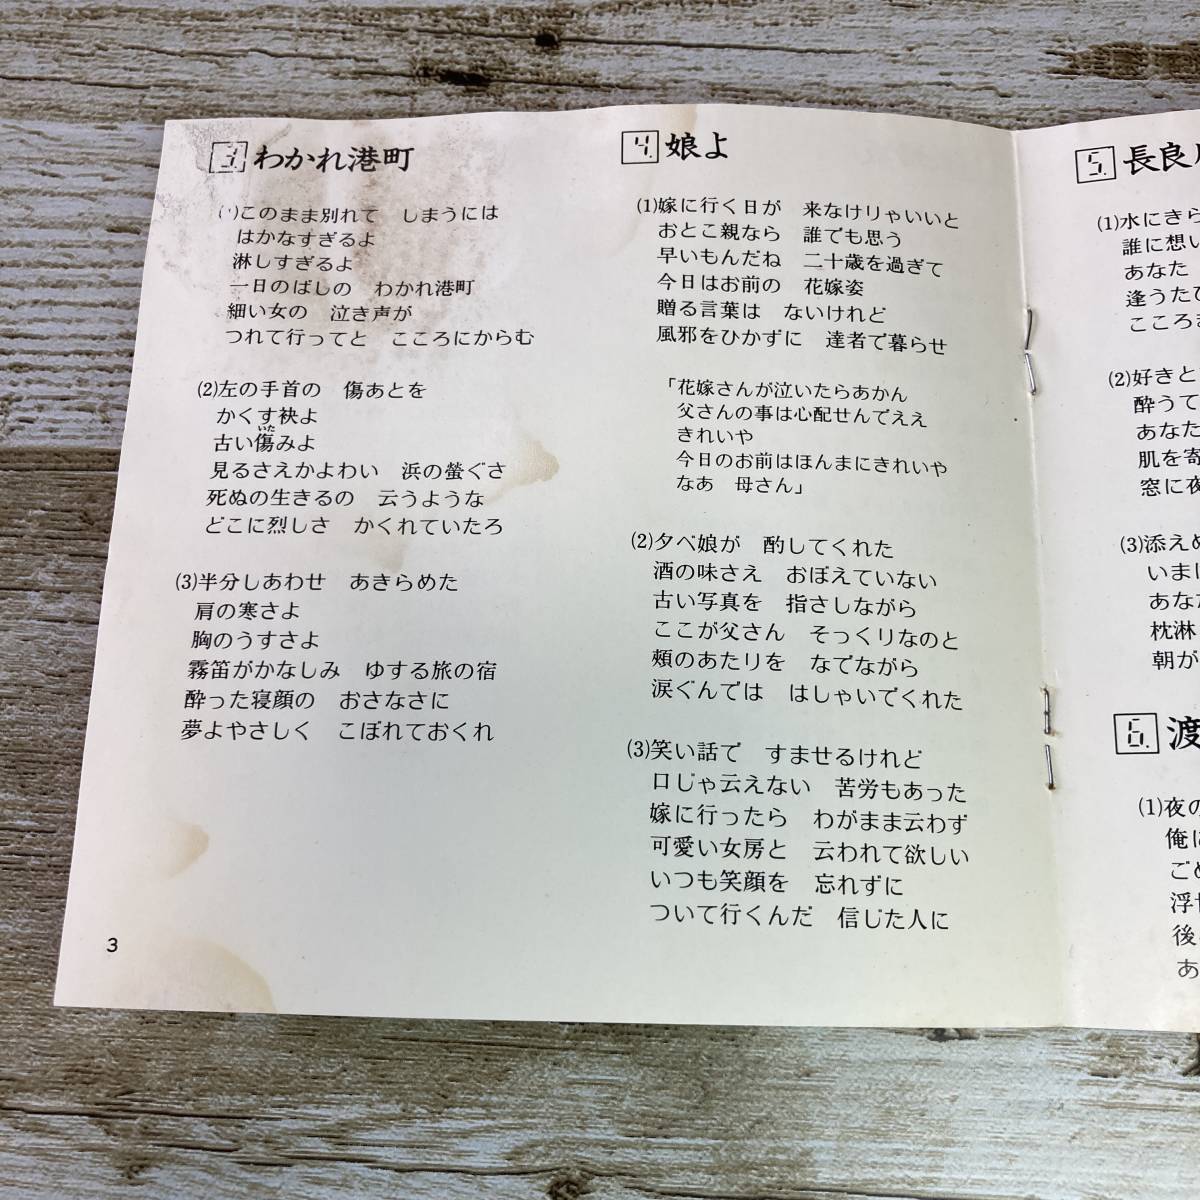 3. わかれ港町
(1)このまま別れて　しまうには
はかなすぎるよ
淋しすぎるよ
一日のばしの　わかれ港町
細い女の　泣き声が
つれて行ってと　こころにからむ
(2)左の手首の　傷あとを
かくす袂よ
いた
古い傷みよ
見るさえかよわい　浜の螢ぐさ
死ぬの生きるの　云うような
どこに烈しさ　かくれていたろ
(3)半分しあわせ　あきらめた
肩の寒さよ
胸のうすさよ
霧笛がかなしみ　ゆする旅の宿
酔った寝顔の　おさなさに
夢よやさしく　こぼれておくれ
3
4. 娘よ
(1)嫁に行く日が　来なけりゃいいと
おとこ親なら　誰でも思う
早いもんだね　二十歳を過ぎて
今日はお前の　花嫁姿
贈る言葉は　ないけれど
風邪をひかずに　達者で暮らせ
「花嫁さんが泣いたらあかん
父さんの事は心配せんでええ
きれいや
今日のお前はほんまにきれいや
なあ　母さん」
(2)夕べ娘が　酌してくれた
酒の味さえ　おぼえていない
古い写真を　指さしながら
ここが父さん　そっくりなのと
頬のあたりを　なでながら
涙ぐんでは　はしゃいでくれた
(3)笑い話で　すませるけれど
口じゃ云えない　苦労もあった
嫁に行ったら　わがまま云わず
可愛い女房と　云われて欲しい
いつも笑顔を　忘れずに
ついて行くんだ　信じた人に
5. 長良
(1)水にきら
誰に想い
あなた
逢うたび
こころ
(2)好きと
酔うて
あなた
肌を寄
窓に夜
(3)添えぬ
いまは
あなた
枕淋
朝が
6. 渡
(1)夜の
俺に
ごめ
浮世
後
あ